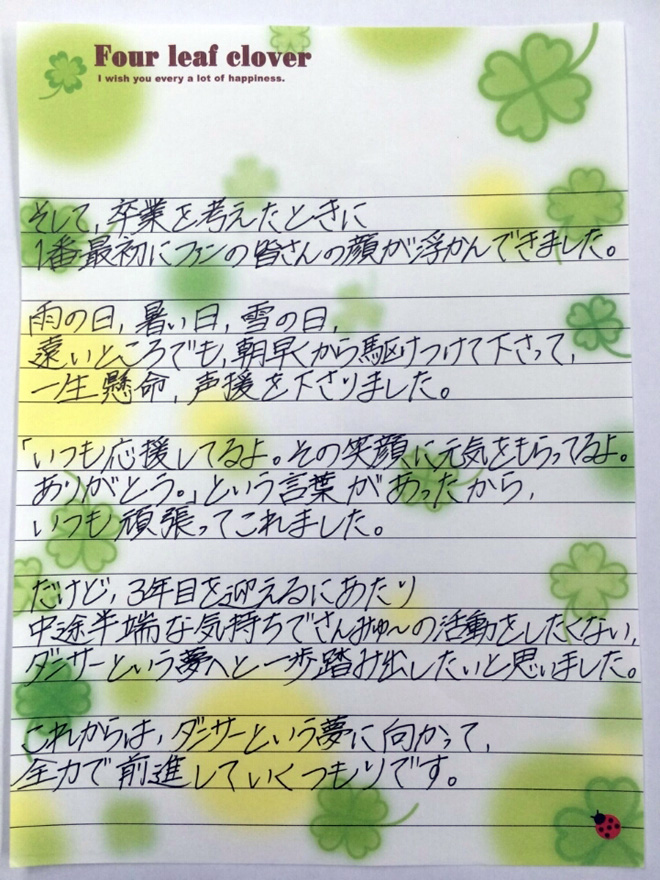 Four leaf clover
I wish you every a lot of happiness.
そして、卒業を考えたときに
1番最初にファンの皆さんの顔が浮かんできました。
雨の日、暑い日、雪の日、
遠いところでも、朝早くから駆けつけて下さって、
一生懸命、声援を下さりました。
「いつも応援してるよ。その笑顔に元気をもらってるよ。
ありがとう。」という言葉があったから、
いつも頑張ってこれました。
だけど、3年目を迎えるにあたり
中途半端な気持ちでさんみゅ〜の活動をしたくない、
ダンサーという夢へと一歩踏み出したいと思いました。
これからは、ダンサーという夢に向かって、
全力で前進していくつもりです。